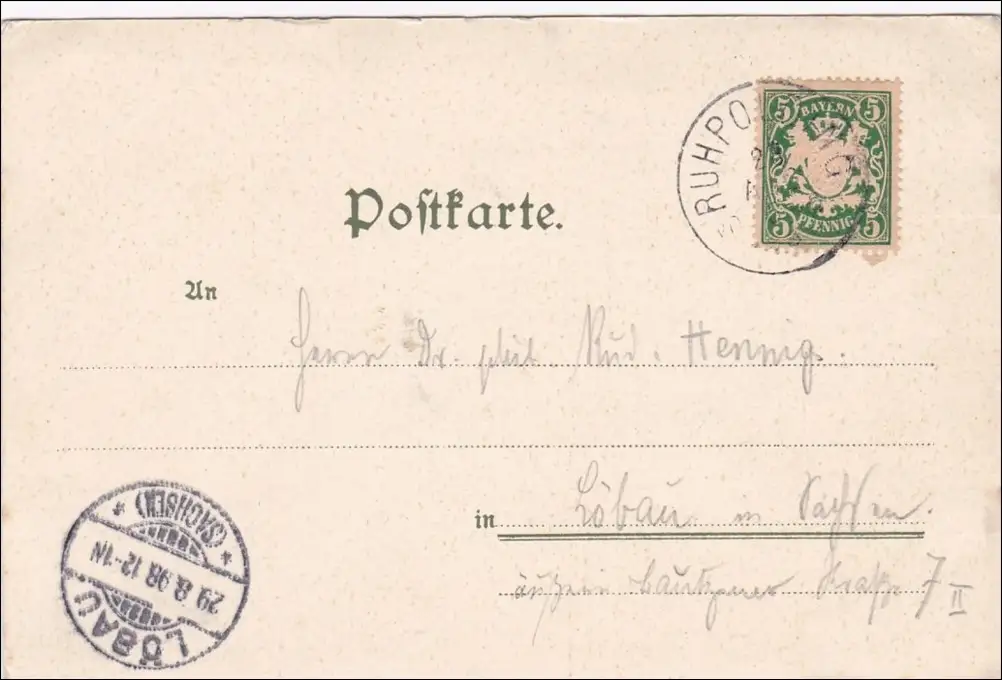 5 BAYERN 5
5 PFENNIG 5
RUHPO
Postkarte.
An
Herrn Dr. phil. Rud. Hennig.
in Löbau in Sachsen.
äußere Bautzner Straße 7 II
LÖBAU
29.8.98.12-1N
* (SACHSEN) *